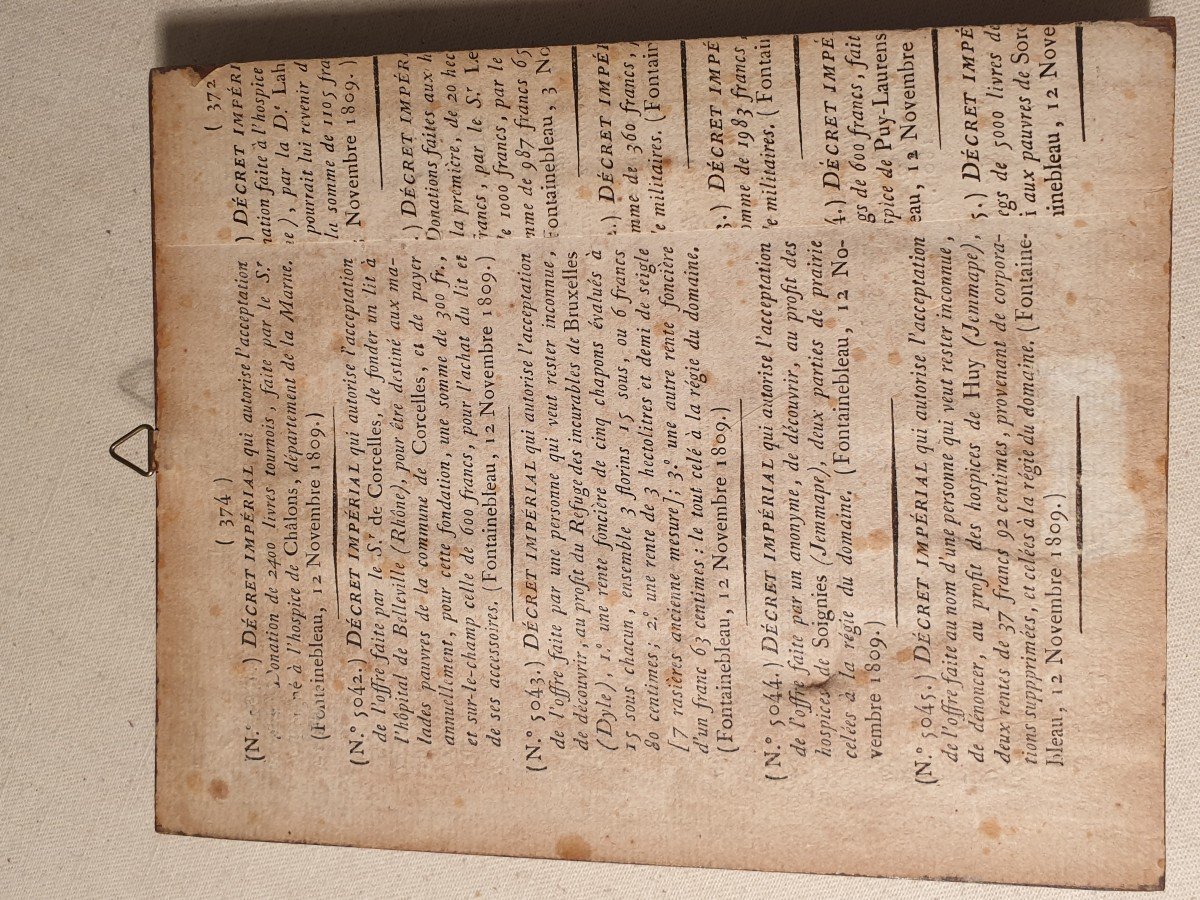 ( 374 )
(N.° DÉCRET IMPÉRIAL qui autorise l'acceptation
Donation de 2400 livres tournois, faite par le S.r
à l'hospice de Châlons, département de la Marne.
(Fontainebleau, 12 Novembre 1809.)
(N.° 5042.) DÉCRET IMPÉRIAL qui autorise l'acceptation
de l'offre faite par le S.r de Corcelles, de fonder un lit à
l'hôpital de Belleville (Rhône), pour être destiné aux ma-
lades pauvres de la commune de Corcelles, et de payer
annuellement, pour cette fondation, une somme de 300 fr.,
et sur-le-champ celle de 600 francs, pour l'achat du lit et
de ses accessoires. (Fontainebleau, 12 Novembre 1809.)
(N.° 5043.) DÉCRET IMPÉRIAL qui autorise l'acceptation
de l'offre faite par une personne qui veut rester inconnue,
de découvrir, au profit du Refuge des incurables de Bruxelles
(Dyle), 1.° une rente foncière de cinq chapons évalués à
15 sous chacun, ensemble 3 florins 15 sous, ou 6 francs
80 centimes; 2.° une rente de 3 hectolitres et demi de seigle
[7 rasières ancienne mesure]; 3.° une autre rente foncière
d'un franc 63 centimes: le tout celé à la régie du domaine.
(Fontainebleau, 12 Novembre 1809.)
(N.° 5044.) DÉCRET IMPÉRIAL qui autorise l'acceptation
de l'offre faite par un anonyme, de découvrir, au profit des
hospices de Soignies (Jemmape), deux parties de prairie
celées à la régie du domaine. (Fontainebleau, 12 No-
vembre 1809.)
(N.° 5045.) DÉCRET IMPÉRIAL qui autorise l'acceptation
de l'offre faite au nom d'une personne qui veut rester inconnue,
de dénoncer, au profit des hospices de Huy (Jemmape),
deux rentes de 37 francs 92 centimes, provenant de corpora-
tions supprimées, et celées à la régie du domaine. (Fontaine-
bleau, 12 Novembre 1809.)
( 372
) DÉCRET IMPÉRI
nation faite à l'hospice
e), par la D.e Lah
pourrait lui revenir d
la somme de 1105 fra
Novembre 1809.)
.) DÉCRET IMPÉR
Donations faites aux h
la première, de 20 hec
francs, par le S.r Le
de 1000 francs, par le
mme de 987 francs 65
Fontainebleau, 3 No
.) DÉCRET IMPÉR
mme de 360 francs,
e militaires. (Fontain
3.) DÉCRET IMPÉ
omme de 1983 francs,
e militaires. (Fontain
4.) DÉCRET IMPÉ
gs de 600 francs, fait
spice de Puy-Laurens
eau, 12 Novembre
5.) DÉCRET IMPÉ
egs de 5000 livres de
i aux pauvres de Sorc
inebleau, 12 Nove